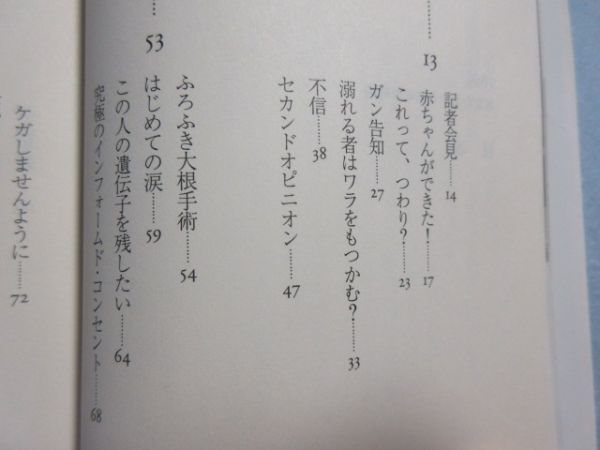 ……13
記者会見……14
赤ちゃんができた!……17
これって、つわり?……23
ガン告知……27
溺れる者はワラをもつかむ?……33
不信……38
セカンドオピニオン……47
……53
ふろふき大根手術……54
はじめての涙……59
この人の遺伝子を残したい……64
究極のインフォームド・コンセント……68
ケガしませんように……72